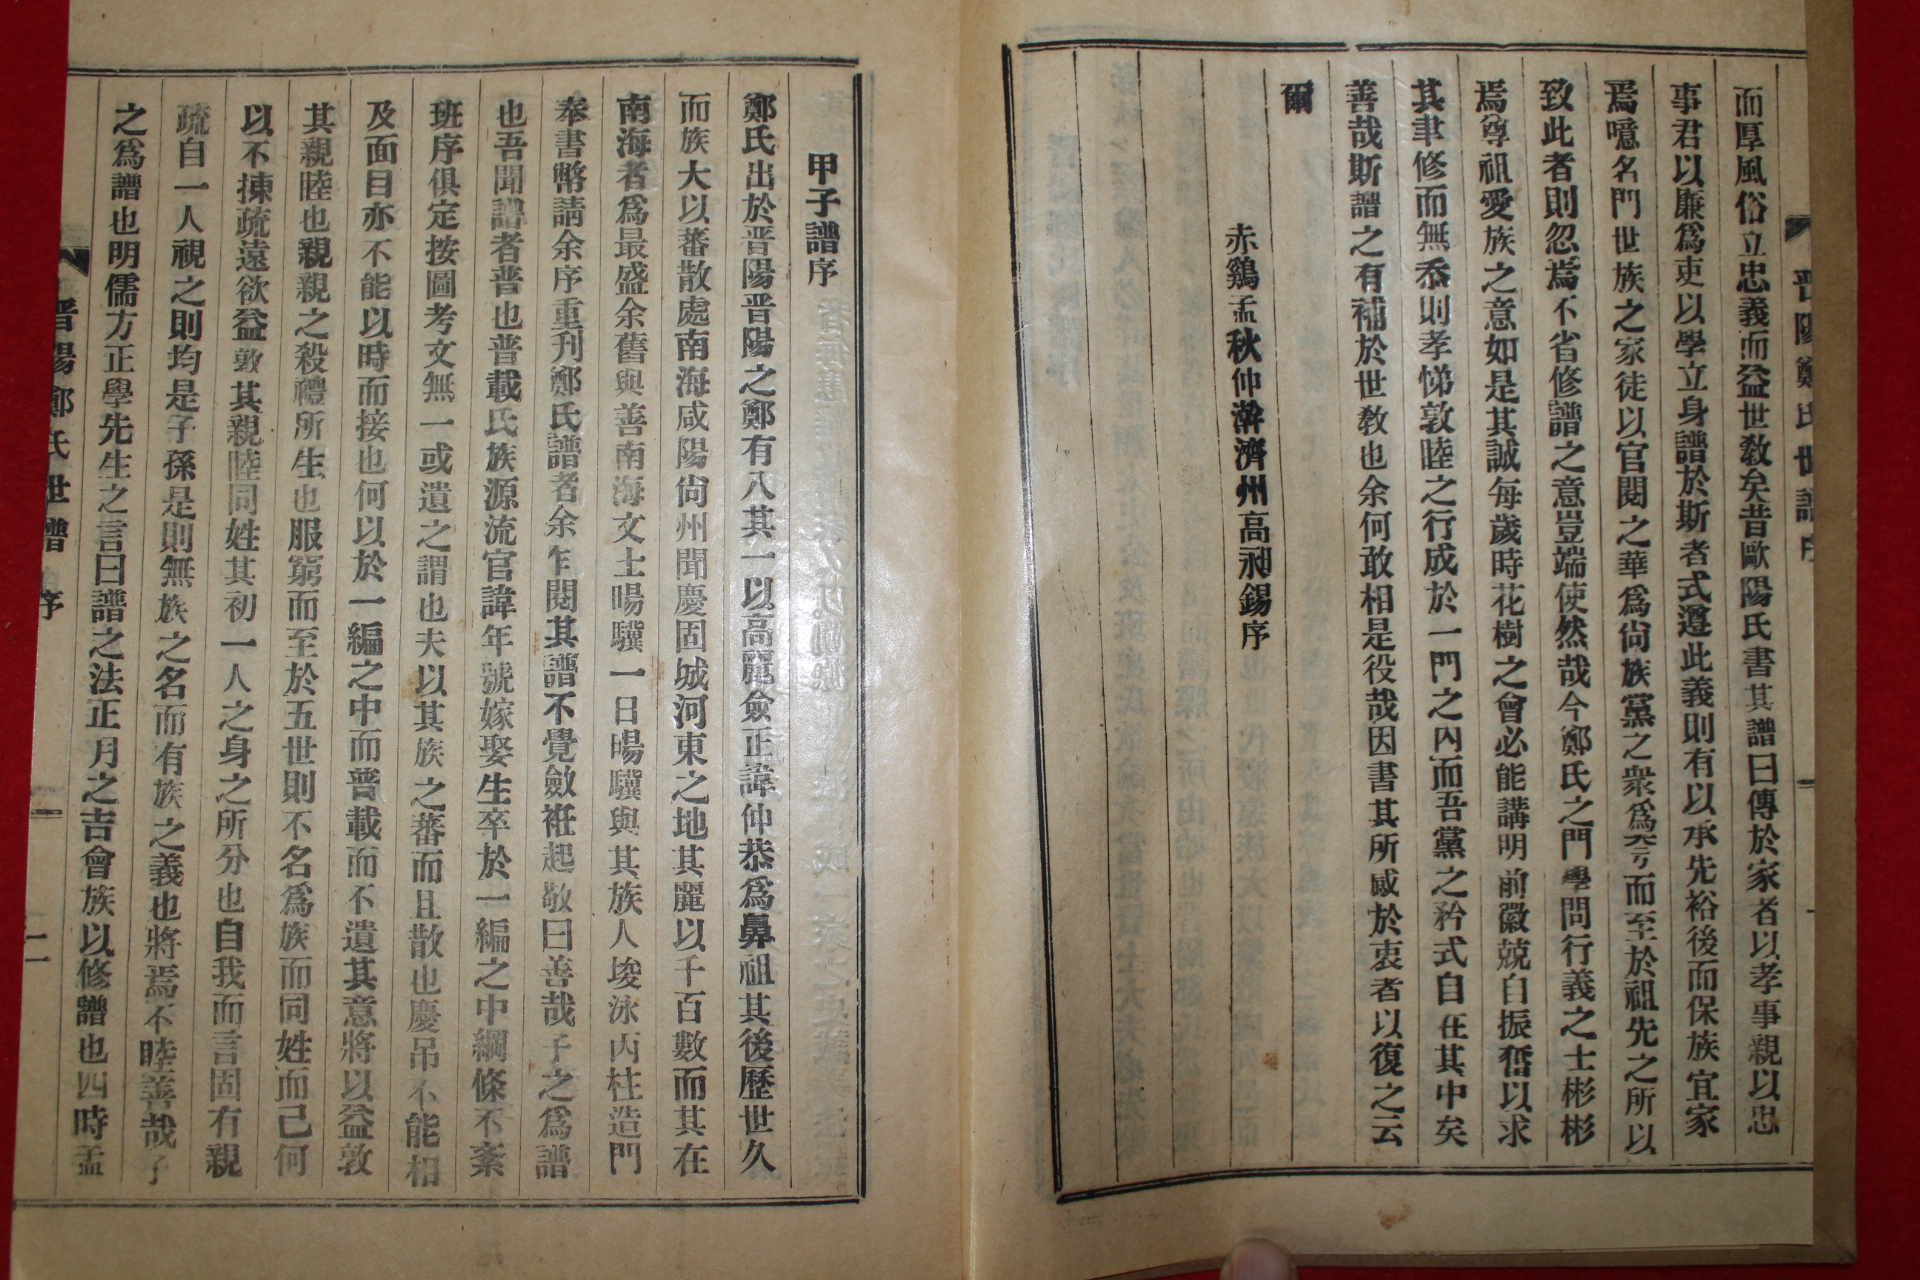 晋陽鄭氏世譜 序
而厚風俗立忠義而益世敎矣昔歐陽氏書其譜曰傳於家者以孝事親以忠
事君以廉爲吏以學立身譜於斯者式遵此義則有以承先裕後而保族宜家
焉噫名門世族之家徒以官閥之華爲尙族黨之衆爲 而至於祖先之所以
致此者則忽焉不省修譜之意豈端使然哉今鄭氏之門學問行義之士彬彬
焉尊祖愛族之意如是其誠每歲時花樹之會必能講明前徽兢自振奮以求
其聿修而無忝則孝悌敦睦之行成於一門之內而吾黨之矜式自在其中矣
善哉斯譜之有補於世敎也余何敢相是役哉因書其所感於衷者以復之云
爾
赤鷄孟秋仲澣濟州高昶錫序
甲子譜序
鄭氏出於晋陽晋陽之鄭有八其一以高麗僉正諱仲恭爲鼻祖其後歷世久
而族大以蕃散處南海咸陽尙州聞慶固城河東之地其麗以千百數而其在
南海者爲最盛余舊與善南海文士暘驥一日暘驥與其族人埈泳丙柱造門
奉書幣請余序重刊鄭氏譜者余乍閱其譜不覺斂衽起敬曰善哉子之爲譜
也吾聞譜者普也普載氏族源流官諱年號嫁娶生卒於一編之中綱條不紊
班序俱定按圖考文無一或遺之謂也夫以其族之蕃而且散也慶吊不能相
及面目亦不能以時而接也何以於一編之中而普載而不遺其意將以益敦
其親睦也親親之殺禮所生也服窮而至於五世則不名爲族而同姓而己何
以不揀疏遠欲益敦其親睦同姓其初一人之身之所分也自我而言固有親
疏自一人視之則均是子孫是則無族之名而有族之義也將焉不睦善哉子
之爲譜也明儒方正學先生之言曰譜之法正月之吉會族以修譜也四時孟
晋陽鄭氏世譜 序 二